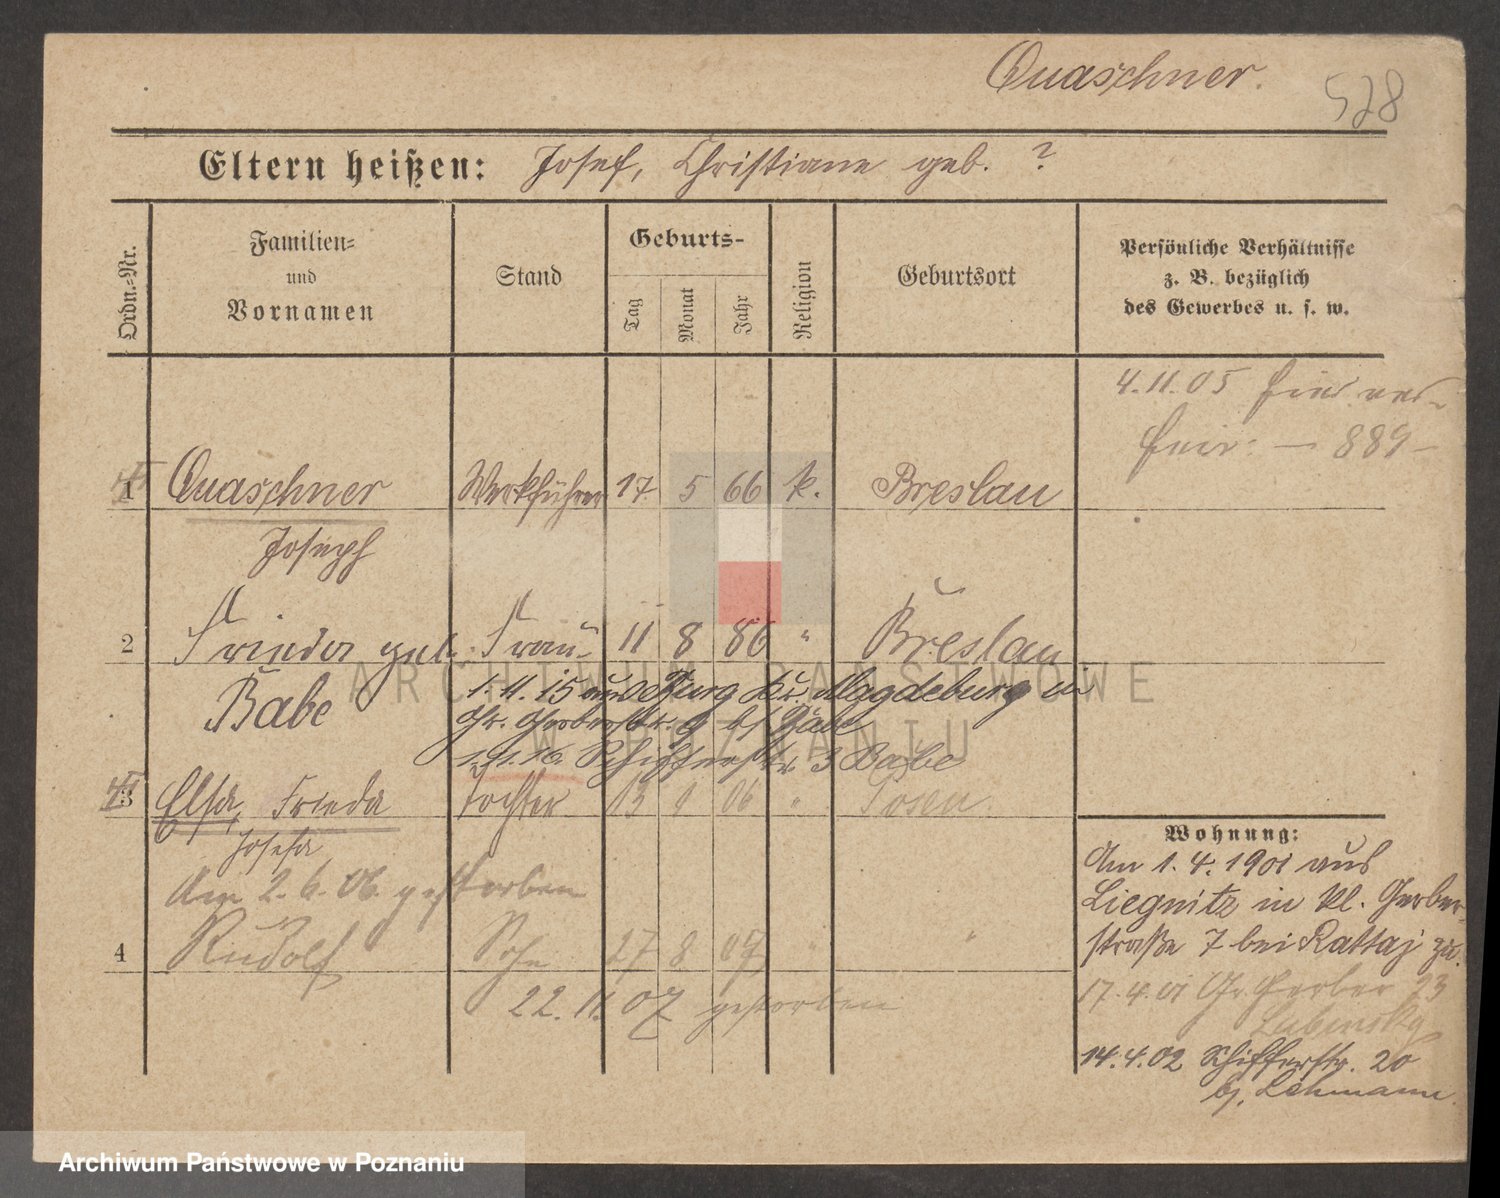 Quaschner.
528
Eltern heißen: Josef, Christiane geb. ?
Ordn.-Nr.
Familien-
und
Vornamen
Stand
Geburts-
Tag
Monat
Jahr
Religion
Geburtsort
Persönliche Verhältnisse
z. B. bezüglich
des Gewerbes u. s. w.
4.11.05
889
1 Quaschner Werkführer 17. 5 66 k. Breslau
Joseph
2 Frieda geb. Frau 11 8 86 " Breslau
Babe
1.11.15 aus Burg Kr. Magdeburg
Gr. Gerberstr. 9 Babe
1.1.16. Schifferstr. 3 Babe
3 Elsa, Frieda Tochter 13 1 06 " Posen.
Josefa
Am 2.6.06. gestorben
4 Rudolf Sohn 27 8 07 " "
22.11.07 gestorben
Wohnung:
Am 1.4.1901 aus
Liegnitz in Kl. Gerber-
straße 7 bei Rattaj zu.
17.4.01 Gr. Gerber 23
14.4.02 Schifferstr. 20
bj. Lehmann.
ARCHIWUM PAŃSTWOWE
W POZNANIU
Archiwum Państwowe w Poznaniu